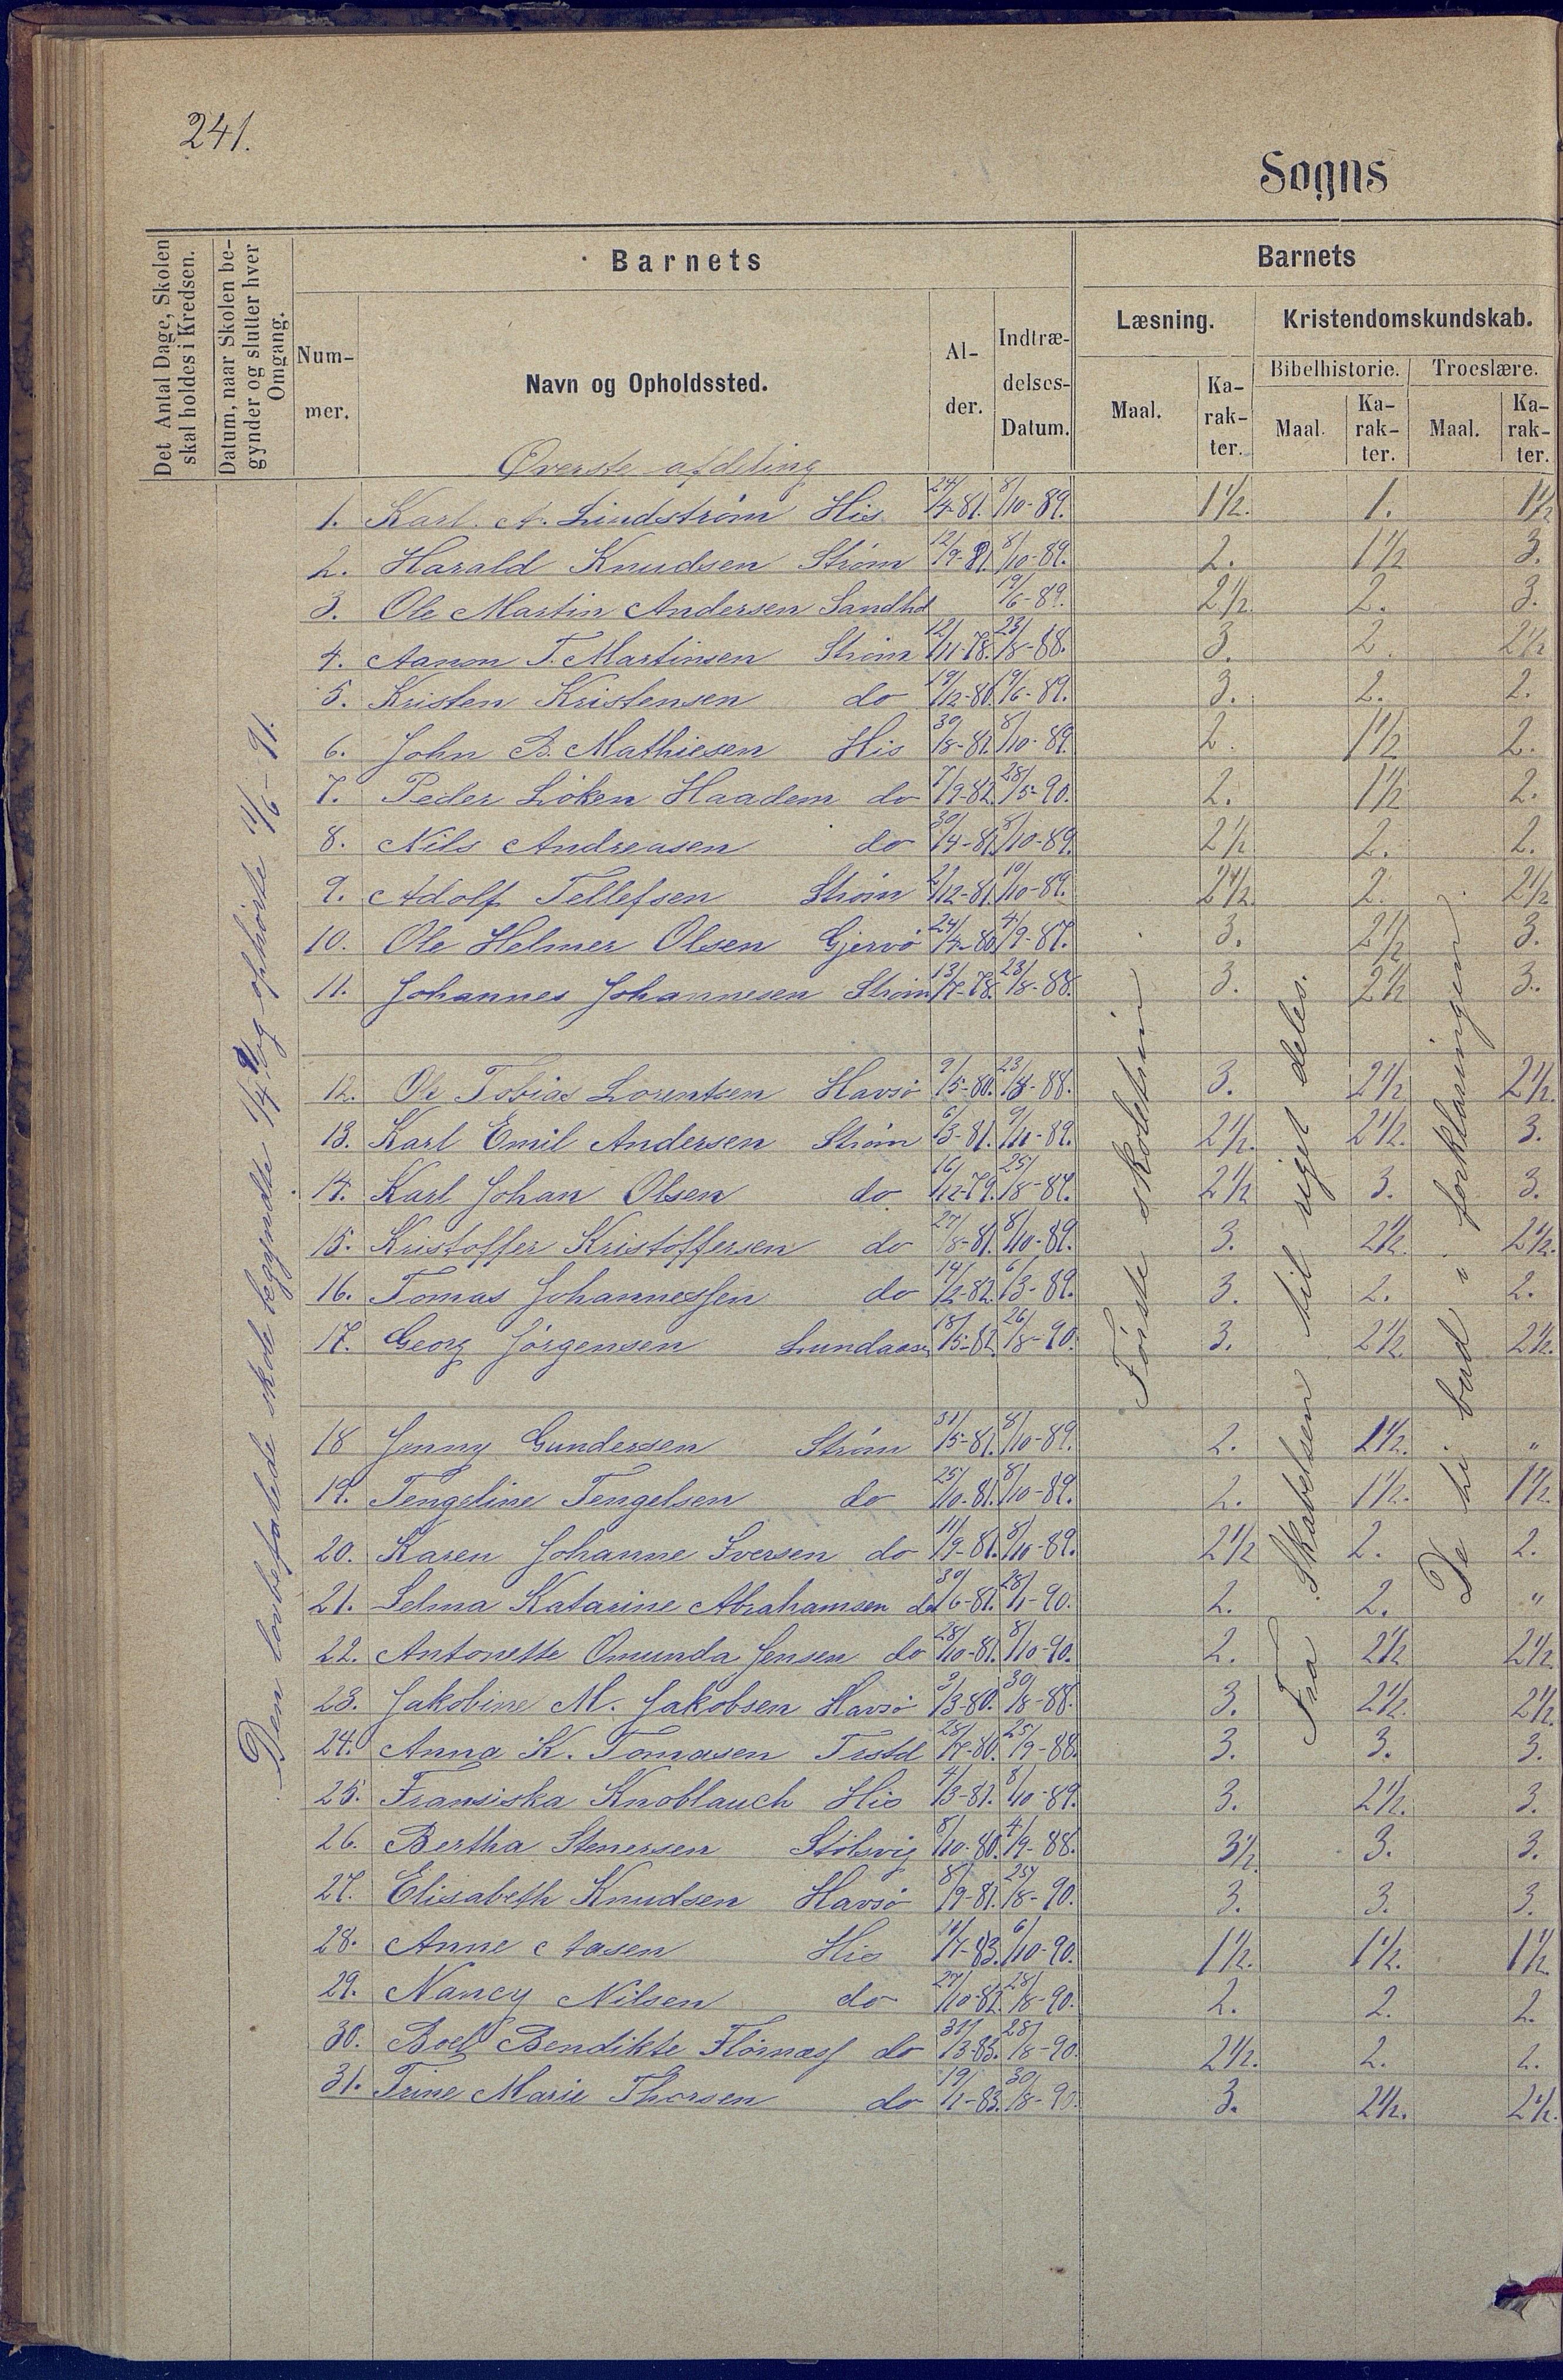 241.
Sogns
Det Antal Dage, Skolen skal holdes i Kredsen.
Datum, naar Skolen begynder og slutter hver Omgang.
Barnets
Nummer.
Navn og Opholdssted.
Alder.
Indtrædelses-Datum.
Barnets
Læsning.
Maal.
Karakter.
Kristendomskundskab.
Bibelhistorie.
Maal.
Karakter.
Troeslære.
Maal.
Karakter.
Øverste afdeling
1. Karl. A. Lindstrøm His 24/4-81. 8/10-89. 1 1/2. 1. 1 1/2
2. Harald Knudsen Strøm 12/9-81. 8/10-89. 2. 1 1/2 3.
3. Ole Martin Andersen Sandhd 19/6-89. 2 1/2. 2. 3.
4. Aanon T. Martinsen Strøm 12/11-78. 23/8-88. 3. 2. 2 1/2
5. Kristen Kristensen do 19/12-80. 19/6-89. 3. 2. 2.
6. John B. Mathiesen His 30/8-81. 8/10-89. 2. 1 1/2 2.
7. Peder Löken Haadem do 7/9-82. 28/5-90. 2. 1 1/2 2.
8. Nils Andreasen do 30/4-81. 8/10-89. 2 1/2 2. 2.
9. Adolf Tellefsen Strøm 2/12-81. 10/10-89. 2 1/2. 2. 2 1/2
10. Ole Helmer Olsen Gjervö 24/4-80. 4/9-87. 3. 2 1/2 3.
11. Johannes Johannesen Strøm 13/7-78. 23/8-88. 3. 2 1/2 3.
12. Ole Tobias Lorentsen Havsö 9/5-80. 23/8-88. 3. 2 1/2 2 1/2.
13. Karl Emil Andersen Strøm 6/3-81. 9/10-89. 2 1/2. 2 1/2. 3.
14. Karl Johan Olsen do 16/12-79. 25/8-87. 2 1/2 3. 3.
15. Kristoffer Kristoffersen do 27/8-81. 8/10-89. 3. 2 1/2. 2 1/2.
16. Tomas Johannessen do 14/2-82. 6/3-89. 3. 2. 2.
17. Georg Jörgensen Lundaasen 18/5-82. 26/8-90. 3. 2 1/2. 2 1/2.
18 Jenny Gundersen Strøm 31/5-81. 8/10-89. 2. 1 1/2. "
19. Tengeline Tengelsen do 25/10-81. 8/10-89. 2. 1 1/2. 1 1/2.
20. Karen Johanne Iversen do 11/9-81. 8/10-89. 2 1/2 2. 2.
21. Selma Katarine Abrahamsen do 30/6-81. 28/1-90. 2. 2. "
22. Antonette Omunda Jensen do 28/10-81. 8/10-90. 2. 2 1/2 2 1/2.
23. Jakobine M. Jakobsen Havsö 3/3-80. 30/8-88. 3. 2 1/2. 2 1/2.
24. Anna K. Tomasen Trstd 28/7-80. 25/9-88. 3. 3. 3.
25. Fransiska Knoblauch His 4/3-81. 8/10-89. 3. 2 1/2. 3.
26. Bertha Stenersen Stölsvig 8/10-80. 4/9-88. 3 1/2. 3. 3.
27. Elisabeth Knudsen Havsö 8/9-81. 25/8-90. 3. 3. 3.
28. Anne Aasen His 11/7-83. 6/10-90. 1 1/2. 1 1/2. 1 1/2.
29. Nancy Nilsen do 27/10-82. 28/8-90. 2. 2. 2.
30. Boel Bendikte Flörnæss do 31/3-83. 28/8-90. 2 1/2. 2. 2.
31. Trine Marie Thorsen do 19/1-83. 30/8-90. 3. 2 1/2. 2 1/2.
Den lovbefalede skole begyndte og ophörte 11/6-91.
Förste skoletrin
Fra Skabelsen til riget deles.
De ti bud i forklaringen